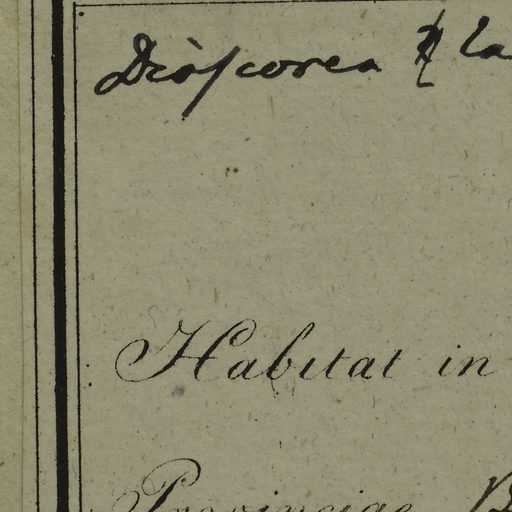 Dioscorea la
Habitat in
Provinciae B